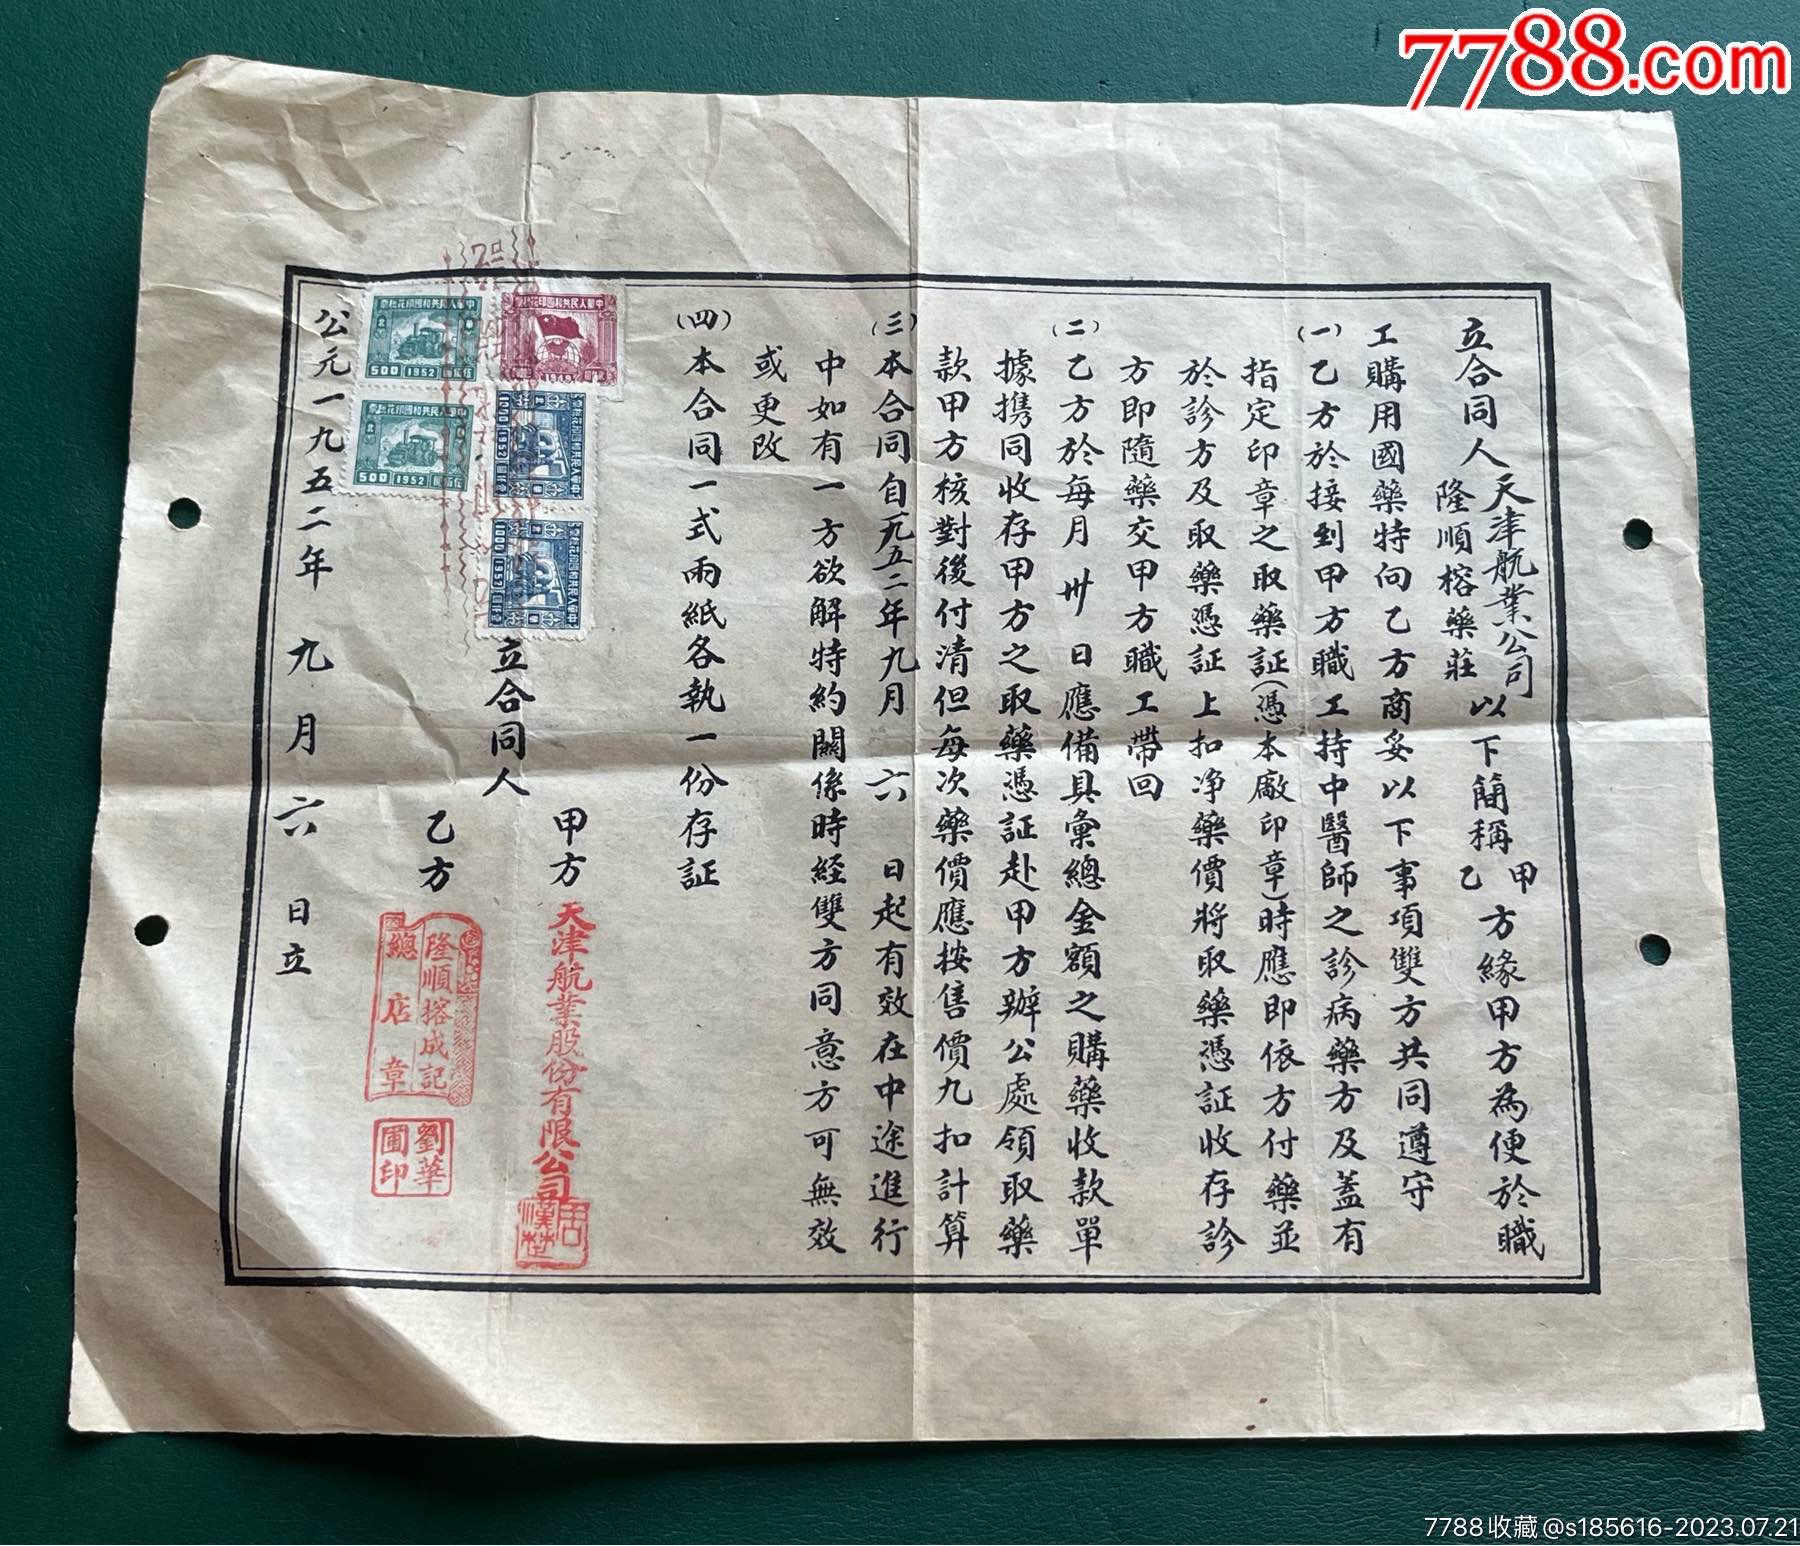 7788.com
立合同人天津航業公司
隆順榕藥莊
以下簡稱甲
乙
方緣甲方為便於職
工購用國藥特向乙方商妥以下事項雙方共同遵守
(一)乙方於接到甲方職工持中醫師之診病藥方及蓋有
指定印章之取藥証(憑本廠印章)時應即依方付藥並
於診方及取藥憑証上扣净藥價將取藥憑証收存診
方即隨藥交甲方職工帶回
(二)乙方於每月卅日應備具彙總金額之購藥收款單
據携同收存甲方之取藥憑証赴甲方辦公處領取藥
款甲方核對後付清但每次藥價應按售價九扣計算
(三)本合同自一九五二年九月六日起有效在中途進行
中如有一方欲解特約關係時経雙方同意方可無效
或更改
(四)本合同一式兩紙各執一份存証
立合同人
甲方
天津航業股份有限公司
乙方
隆順榕成記
總店章
劉華圃印
公元一九五二年九月六日立
中華人民共和國印花税票
1949
中華人民共和國印花税票
500 1952
中華人民共和國印花税票
500 1952
中華人民共和國印花税票
1000 1952
中華人民共和國印花税票
1000 1952
7788收藏@s185616-2023.07.21